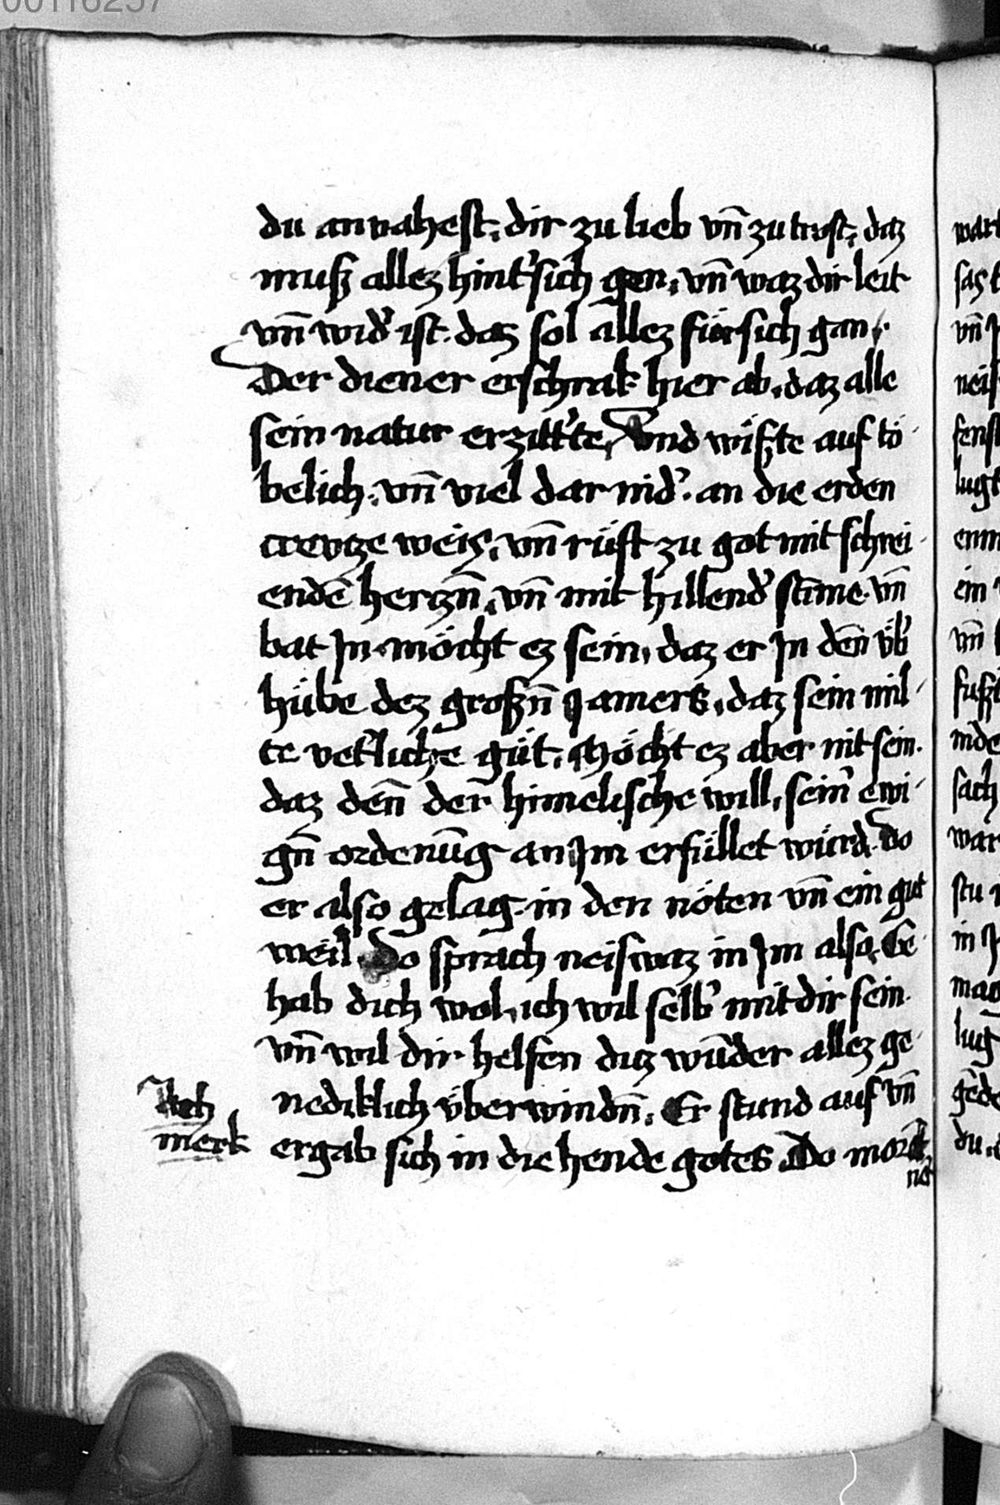 00116257
du anvahest. dir zu lieb vn̄ zu trost. daz
muß allez hint'sich gen. vn̄ waz dir leit
vn̄ wid' ist. daz sol allez für sich gan.
Der diener erschrak hier ab. daz alle
sein natur erzitt'te. Vnd wüßte auf tö
belich. vn̄ viel dar nid'. an die erden
crevtze weis. vn̄ rüft zu got mit schrei
endē hertzn̄. vn̄ mit hillend' stīme. vn̄
bat Jn. möcht ez sein. daz er Jn den̄ üb'
hübe dez großn̄ Jamers. daz sein mil
te vet'liche güt. Möcht ez aber nit sein.
daz den̄ der himelische will. sein' ewi
gn̄ ordenūg an Jm erfüllet würd. Do
er also gelag. in den nöten vn̄ ein gut
weil. Do sprach neiswaz in Jm also. Ge
hab dich wol. ich wil selb' mit dir sein.
vn̄ wil dir helfen diz wūder allez ge
nediklich überwindn̄. Er stund auf vn̄
merk ergab sich in die hende gotes. Do